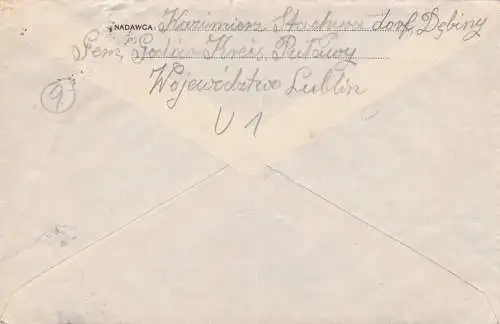 NADAWCA Kazimierz Stachyra dorf, Dębiny
Gem, Godów Kreis, Puławy
Województwo Lublin
9
U 1